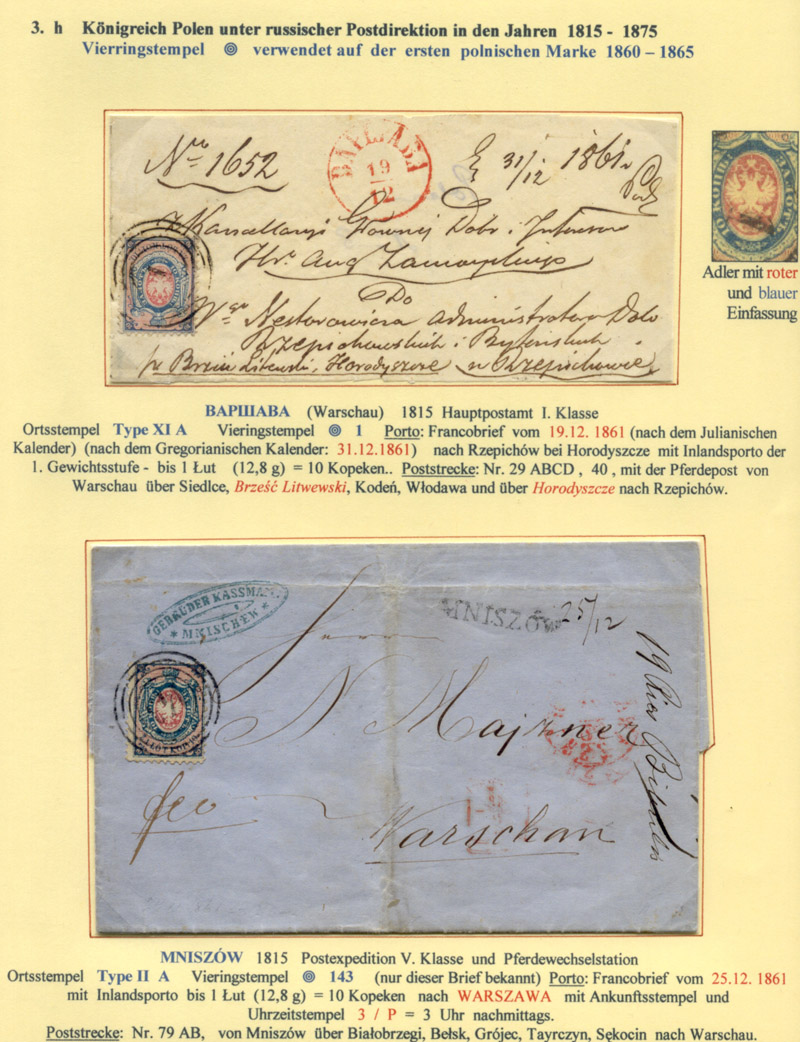 3. h Königreich Polen unter russischer Postdirektion in den Jahren 1815 - 1875
Vierringstempel verwendet auf der ersten polnischen Marke 1860 – 1865
ВАРШАВА
19
12
Nro 1652
31/12 1861
z Kancellaryi Głównej Dobr i Interesów
Hr. Aug Zamoyskiego
Do
Wgo Nestorowicza Administratora Dobr
Rzepichowskich i Byteńskich
Litewski, Horodyszcze w Rzepichowie
Adler mit roter
und blauer
Einfassung
ВАРШАВА (Warschau) 1815 Hauptpostamt I. Klasse
Ortsstempel Type XI A Vieringstempel 1 Porto: Francobrief vom 19.12. 1861 (nach dem Julianischen
Kalender) (nach dem Gregorianischen Kalender: 31.12.1861) nach Rzepichów bei Horodyszcze mit Inlandsporto der
1. Gewichtsstufe - bis 1 Łut (12,8 g) = 10 Kopeken.. Poststrecke: Nr. 29 ABCD , 40 , mit der Pferdepost von
Warschau über Siedlce, Brześć Litwewski, Kodeń, Włodawa und über Horodyszcze nach Rzepichów.
GEBRÜDER KASSMAN
* MNISCHEW *
MNISZÓW
25/12
Herrn
N. Majzner
Warschau
fco
19
MNISZÓW 1815 Postexpedition V. Klasse und Pferdewechselstation
Ortsstempel Type II A Vieringstempel 143 (nur dieser Brief bekannt) Porto: Francobrief vom 25.12. 1861
mit Inlandsporto bis 1 Łut (12,8 g) = 10 Kopeken nach WARSZAWA mit Ankunftsstempel und
Uhrzeitstempel 3 / P = 3 Uhr nachmittags.
Poststrecke: Nr. 79 AB, von Mniszów über Białobrzegi, Bełsk, Grójec, Tayrczyn, Sękocin nach Warschau.